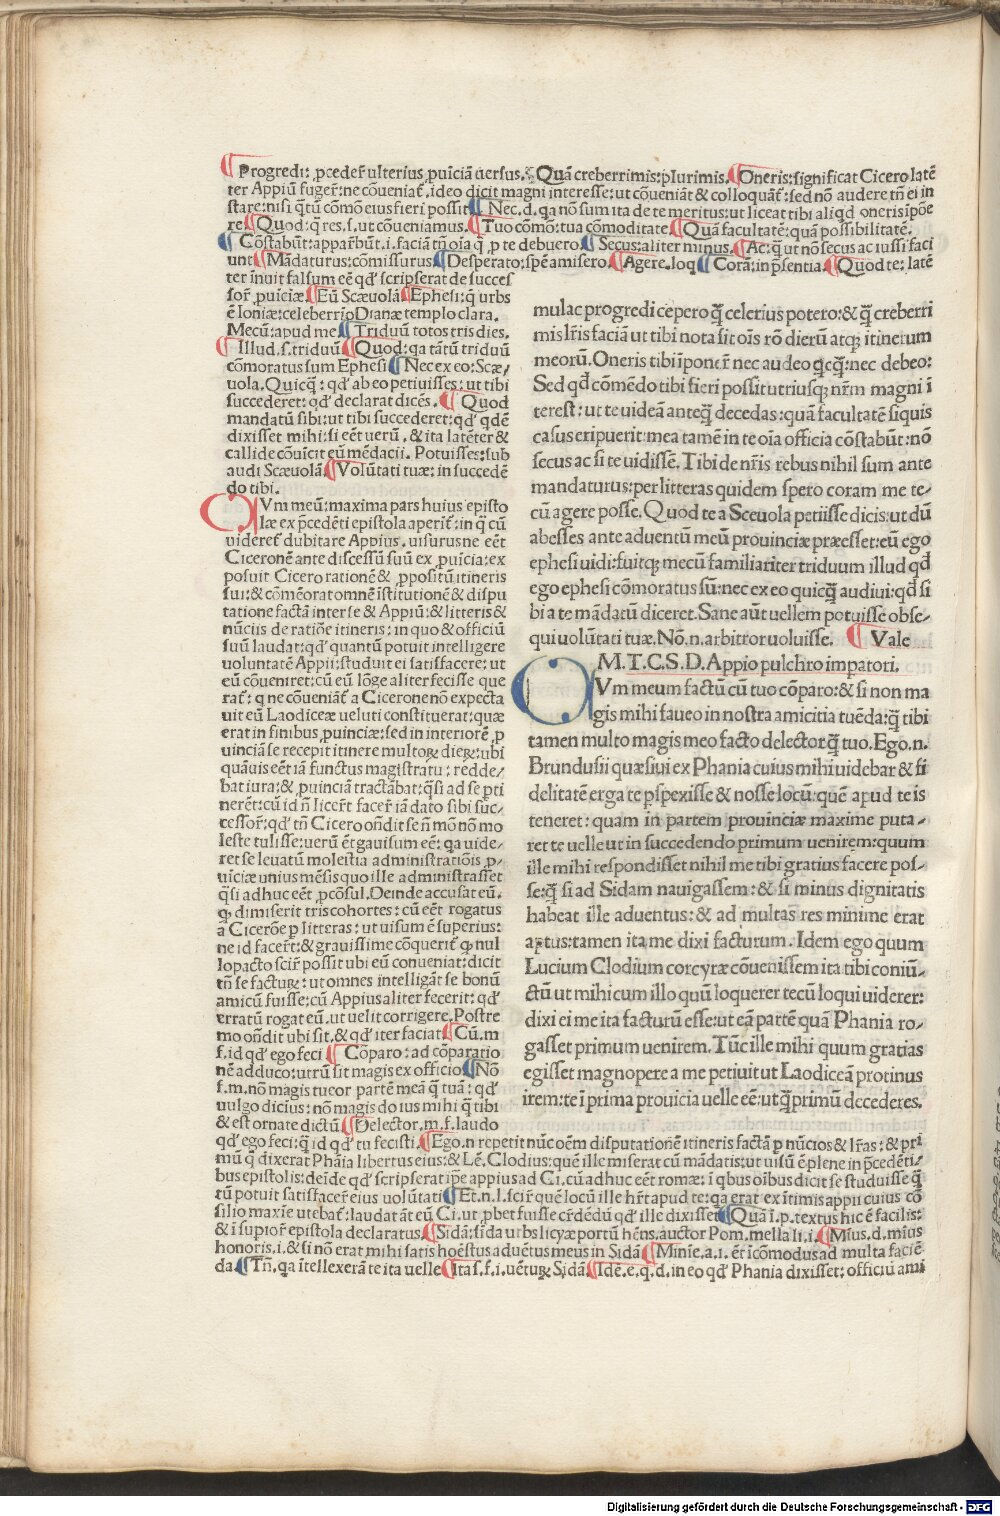 Progredi: ꝓcedeř ulterius ꝓuīciā uersus. Quā creberrimis: plurimis. Oneris: significat Cicero latē
ter Appiū fugeř: ne cōueniat̄. ideo dicit magni interesse: ut cōueniāt & colloquāt̄: sed nō audere tn̄ ei in
stare: nisi q̄tū cōmō eius fieri possit Nec. d. qa nō sum ita de te meritus: ut liceat tibi aliqd oneris īpōe
re Quod: q̄ res. s. ut cōueniamus. Tuo cōmō: tua cōmoditate Quā facultatē: quā possibilitatē.
Cōstabūt: apparebūt. i. faciā tn̄ oīa q̄ ꝓ te debuero Secus: aliter minus. Ac: q̄ ut nō secus ac iussi faci
unt Mādaturus: cōmissurus Desperato: spē amisero. Agere. loq Corā: in p̄sentia. Quod te: latē
ter īnuit falsum eē qď scripserat de succes
sor̄ ꝓuīciæ Eū Scæuolā Ephesi: q̄ urbs
ē Ioniæ: celeberrīo Dianæ templo clara.
Mecū: apud me Triduū totos tris dies.
Illud. s. triduū Quod: qa tātū triduū
cōmoratus sum Ephesi Nec ex eo: Scæ/
uola. Quicq̄: qď ab eo petiuisses: ut tibi
succederet: qď declarat dicēs. Quod
mandatū sibi: ut tibi succederet: qď qdē
dixisset mihi: si eēt uerū. & ita latēter &
callide cōuīcit eū mēdacii. Potuisse: sub
audi Scæuolā Volūtati tuæ: in succedē
do tibi.
CVm meū: maxima pars huius episto
læ ex p̄cedēti epistola aperit̄: in q̄ cū
uideret̄ dubitare Appius. uisurus ne eēt
Ciceronē ante discessū suū ex ꝓuīcia: ex
posuit Cicero rationē & ꝓpositū itineris
sui: & cōmēorat omnē īstitutionē & dispu
tatione factā inter se & Appiū: & litteris &
nūciis de ratiōe itineris: in quo & officiū
suū laudat: qď quantū potuit intelligere
uoluntatē Appii: studuit ei satisfacere: ut
eū cōueniret: cū eū lōge aliter fecisse que
rat̄: q ne cōueniāt̄ a Cicerone nō expecta
uit eū Laodiceæ ueluti constituerat: quæ
erat in finibus ꝓuīciæ: sed in interiorē ꝓ
uīciā se recepit itinere multoꝝ dieꝝ: ubi
quāuis eēt iā functus magistratu: redde/
bat iura: & ꝓuīciā tractābat: q̄si ad se pti
nerēt: cū id n̄ liceřt faceř iā dato sibi suc̄
cessor̄: qď tn̄ Cicero on̄dit se n̄ mō nō mo
leste tulisse: uerū ēt gauisum eē: qa uide
ret se leuatū molestia administratiōis ꝓ
uīciæ unius mēsis quo ille administrasset
q̄si adhuc eēt ꝓcōsul. Deinde accusat eū.
ꝙ dimiserit tris cohortes: cū eēt rogatus
a Cicerōe p litteras: ut uisum ē superius:
ne id faceřt: & grauissime cōquerit̄ ꝙ nul
lo pacto sciř possit ubi eū conueniat: dicit
tn̄ se facturꝝ: ut omnes intelligāt se bonū
amicū fuisse: cū Appius aliter fecerit: qď
erratū rogat eū. ut uelit corrigere. Postre
mo on̄dit ubi sit. & qď iter faciat Cū. m
f. id qď ego feci Cōparo: ad cōparatio
nē adduco: utrū sit magis ex officio Nō
f. m. nō magis tueor partē meā q̄ tuā: qď
uulgo dicius: nō magis do ius mihi q̄ tibi
& est ornate dictū Delector. m. f. laudo
qď ego feci: q̄ id qď tu fecisti. Ego. n repetit nūc oēm disputationē itineris factā p nūcios & lr̄as: & pri
mū q̄ dixerat Phāia libertus eius: & Lē. Clodius: quē ille miserat cū mādatis: ut uisū ē plene in p̄cedēti
bus epistolis: deīde qď scripserat ip̄e appius ad Ci. cū adhuc eēt romæ: ī qbus oībus dicit se studuisse q̄
tū potuit satisfaceř eius volūtati Et. n. l. sciř quē locū ille hřt apud te: qa erat ex ītimis appii cuius cō
silio maxīe utebat̄: laudat āt eū Ci. ut ꝓbet fuisse cr̄dēdū qď ille dixisset Quā ī. p. textus hic ē facilis:
& ī supioř epistola declaratus. Sidā: sida urbs licyæ portū hēns. auctor Pom. mella li. i. Mīus. d. mīus
honoris. i. & si nō erat mihi satis hoēstus aduētus meus in Sidā Minīe. a. i. ēt īcōmodus ad multa faciē
da Tn̄. qa ītellexerā te ita uelle Ita f. f. i. uētuꝝ Sidā. Idē. e. q. d. in eo qď Phania dixisset: officiū ami
mulac progredi cępero q̄ celerius potero: & q̄ creberri
mis lr̄is faciā ut tibi nota sit oīs rō dierū atqꝫ itinerum
meorū. Oneris tibi īponer̄ nec audeo q̄cq̄: nec debeo:
Sed qď cōmēdo tibi fieri possit utriusqꝫ nr̄m magni ī
terest: ut te uideā anteq̄ decedas: quā facultatē si quis
casus eripuerit: mea tamē in te oīa officia cōstabūt: nō
secus ac si te uidissē. Tibi de nr̄is rebus nihil sum ante
mandaturus: per litteras quidem spero coram me te-
cū agere posse. Quod te a Sceuola petiisse dicis: ut dū
abesses ante aduentū meū prouinciæ præesset: eū ego
ephesi uidi: fuitqꝫ mecū familiariter triduum illud qď
ego ephesi cōmoratus sū: nec ex eo quicq̄ audiui: qď si
bi a te mādatū diceret. Sane aūt uellem potuisse obse-
qui uolūtati tuæ. Nō. n. arbitror uoluisse. Vale
M. T. C. S. D. Appio pulchro impatori.
CVm meum factū cū tuo cōparo: & si non ma
gis mihi faueo in nostra amicitia tuēda: q̄ tibi
tamen multo magis meo facto delector q̄ tuo. Ego. n.
Brundusii quæsiui ex Phania cuius mihi uidebar & fi
delitatē erga te pspexisse & nosse locū: quē apud te is
teneret: quam in partem prouinciæ maxime puta-
ret te uelle ut in succedendo primum uenirem: quum
ille mihi respondisset nihil me tibi gratius facere pos-
se: q̄ si ad Sidam nauigassem: & si minus dignitatis
habeat ille aduentus: & ad multas res minime erat
aptus: tamen ita me dixi facturum. Idem ego quum
Lucium Clodium corcyræ cōuenissem ita tibi coniū-
ctū ut mihi cum illo quū loquerer tecū loqui uiderer:
dixi ei me ita facturū esse: ut eā partē quā Phania ro-
gasset primum uenirem. Tūc ille mihi quum gratias
egisset magnopere a me petiuit ut Laodiceā protinus
irem: te ī prima prouīcia uelle eē: ut q̄primū decederes.
Digitalisierung gefördert durch die Deutsche Forschungsgemeinschaft - DFG